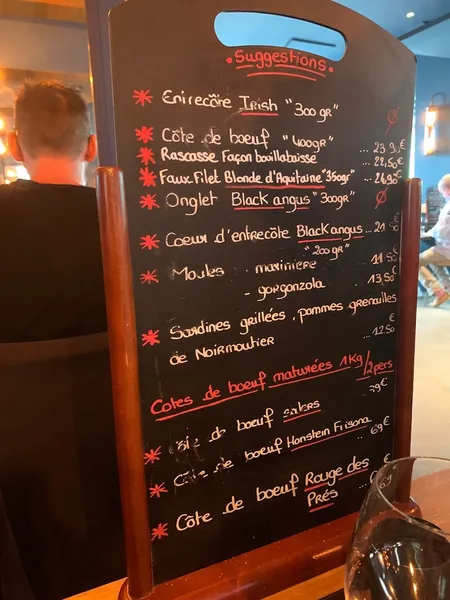 Suggestions
* Entrecôte Irish "300gr" Ø
* Côte de boeuf "400gr" ... 23,9€
* Rascasse Façon bouillabaisse ... 22,50€
* Faux Filet Blonde d'Aquitaine "350gr" ... 26,90€
* Onglet Black angus "300gr" Ø
* Coeur d'entrecôte Black angus ... 21
"200 gr"
* Moules - marinière ... 11,50€
- gorgonzola ... 13,50€
* Sardines grillées, pommes grenailles
de Noirmoutier ... 12,50€
Cotes de boeuf maturées 1Kg/2pers
* de boeuf salers ... 79€
* Côte de boeuf Honstein Frisona ... 69€
* Côte de boeuf Rouge des
Prés ... 69€